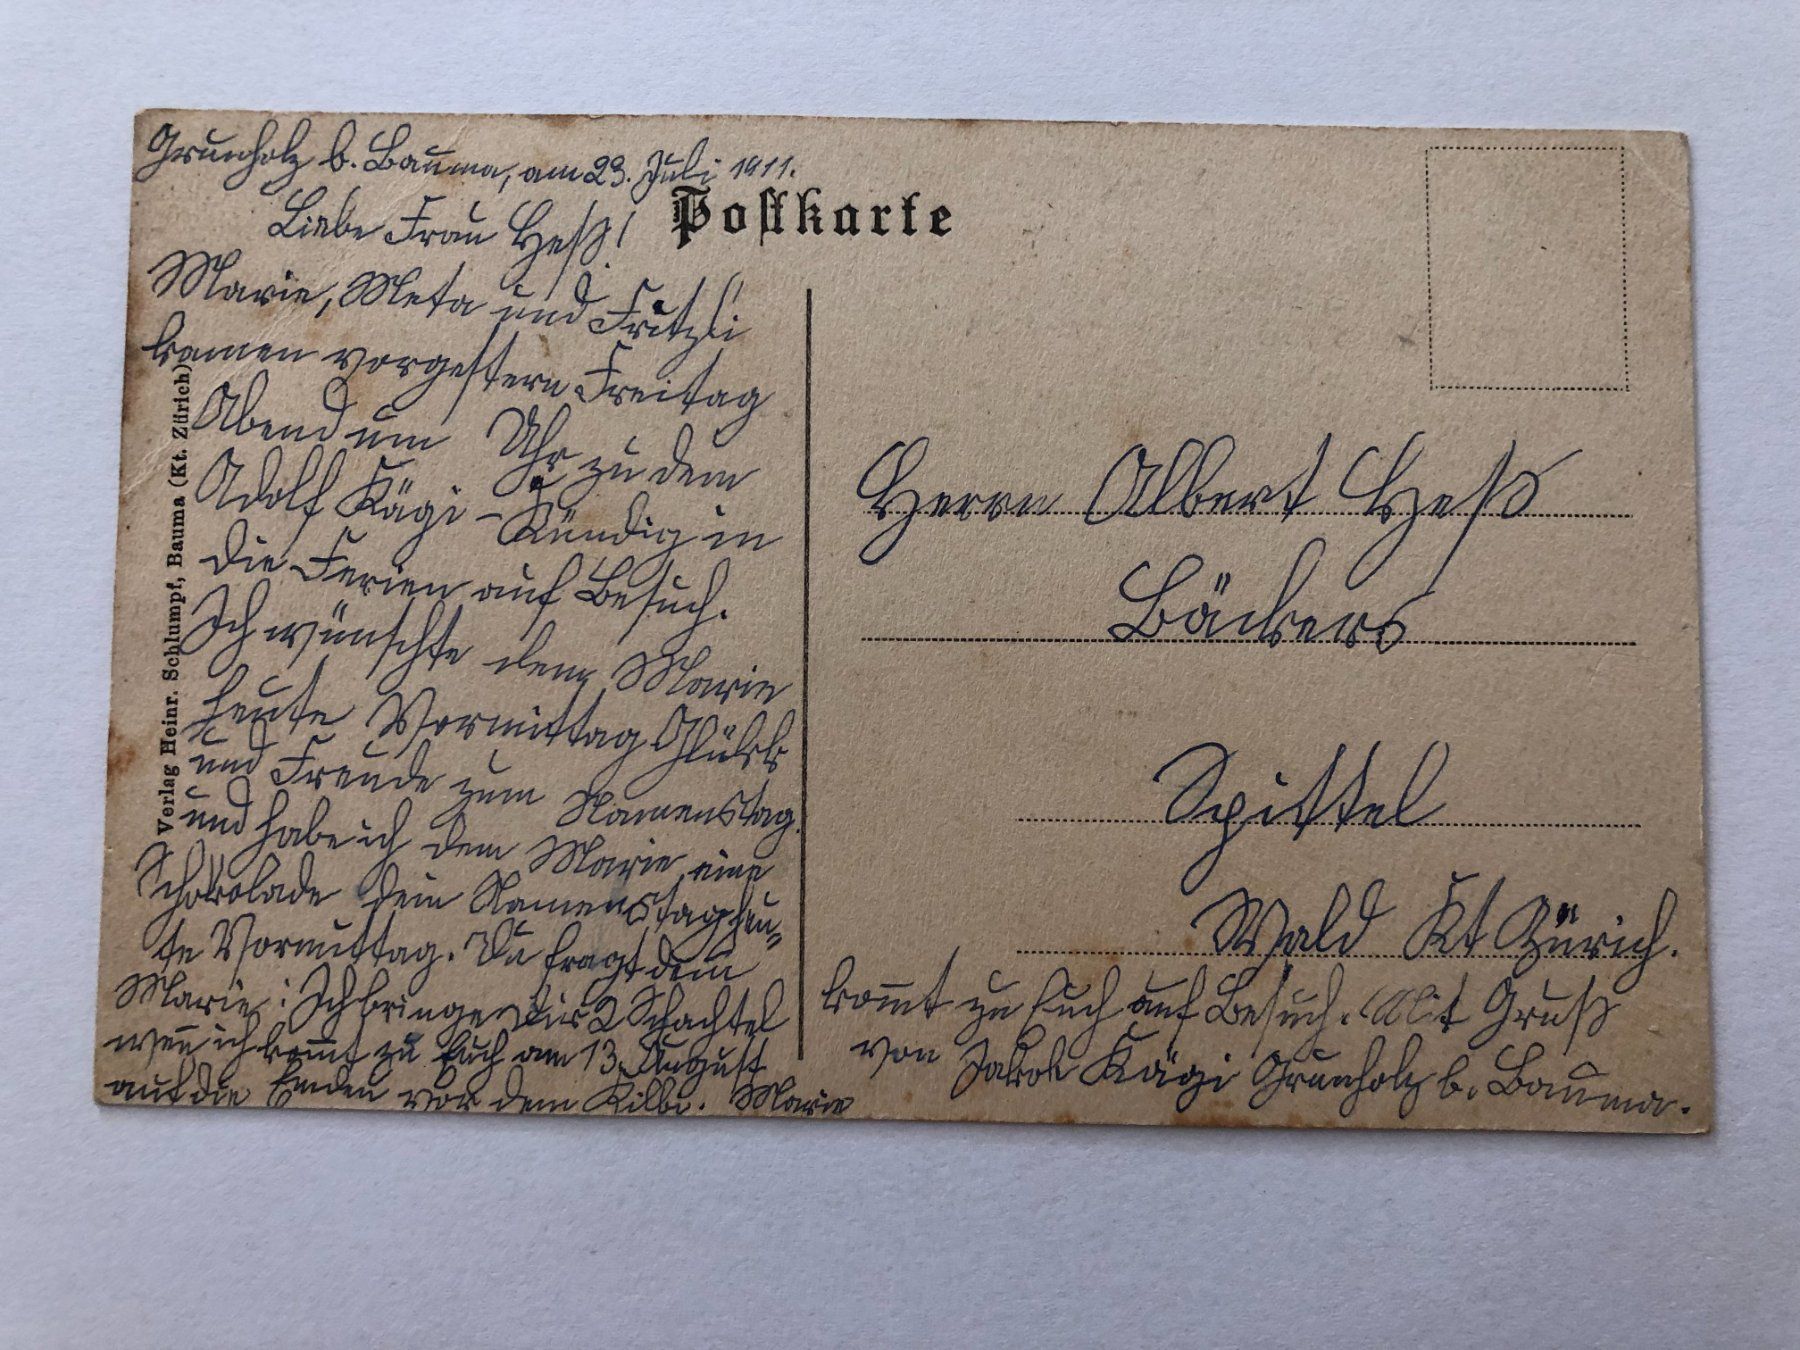 Grunholz b. Bauma, am 23. Juli 1911.
Liebe Frau Heß!
Marie, Meta und Fritzli
kamen vorgestern Freitag
Abend um Uhr zu dem
Adolf Kägi-Kündig in
die Ferien auf Besuch.
Ich wünschte dem Marie
heute Vormittag Glück
und Freude zum Namenstag.
und habe ich dem Marie eine
Schokolade dem Namenstag heu-
te Vormittag. Du fragt dem
Marie: Ich bringe Dir 2 Schachtel
wen̄ ich kom̄t zu Euch am 13. August
auf die vor dem Kilbi. Marie
kom̄t zu Euch auf Besuch. Mit Gruß
von Jakob Kägi Grunholz b. Bauma.
Postkarte
Herrn Albert Heß
Bäckers
Spittel
Wald Kt Zürich.
Verlag Heinr. Schlumpf, Bauma (Kt. Zürich)